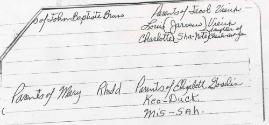 s of John Baptiste Bruno
Parents of Jacob Vieux
Louis (Jarveau) Vieux
Charlotte Sha-Note daughter of
Parents of Mary Rhodd
Parents of Elizabeth Goslin
Keo-Duck
Mis-Sah.